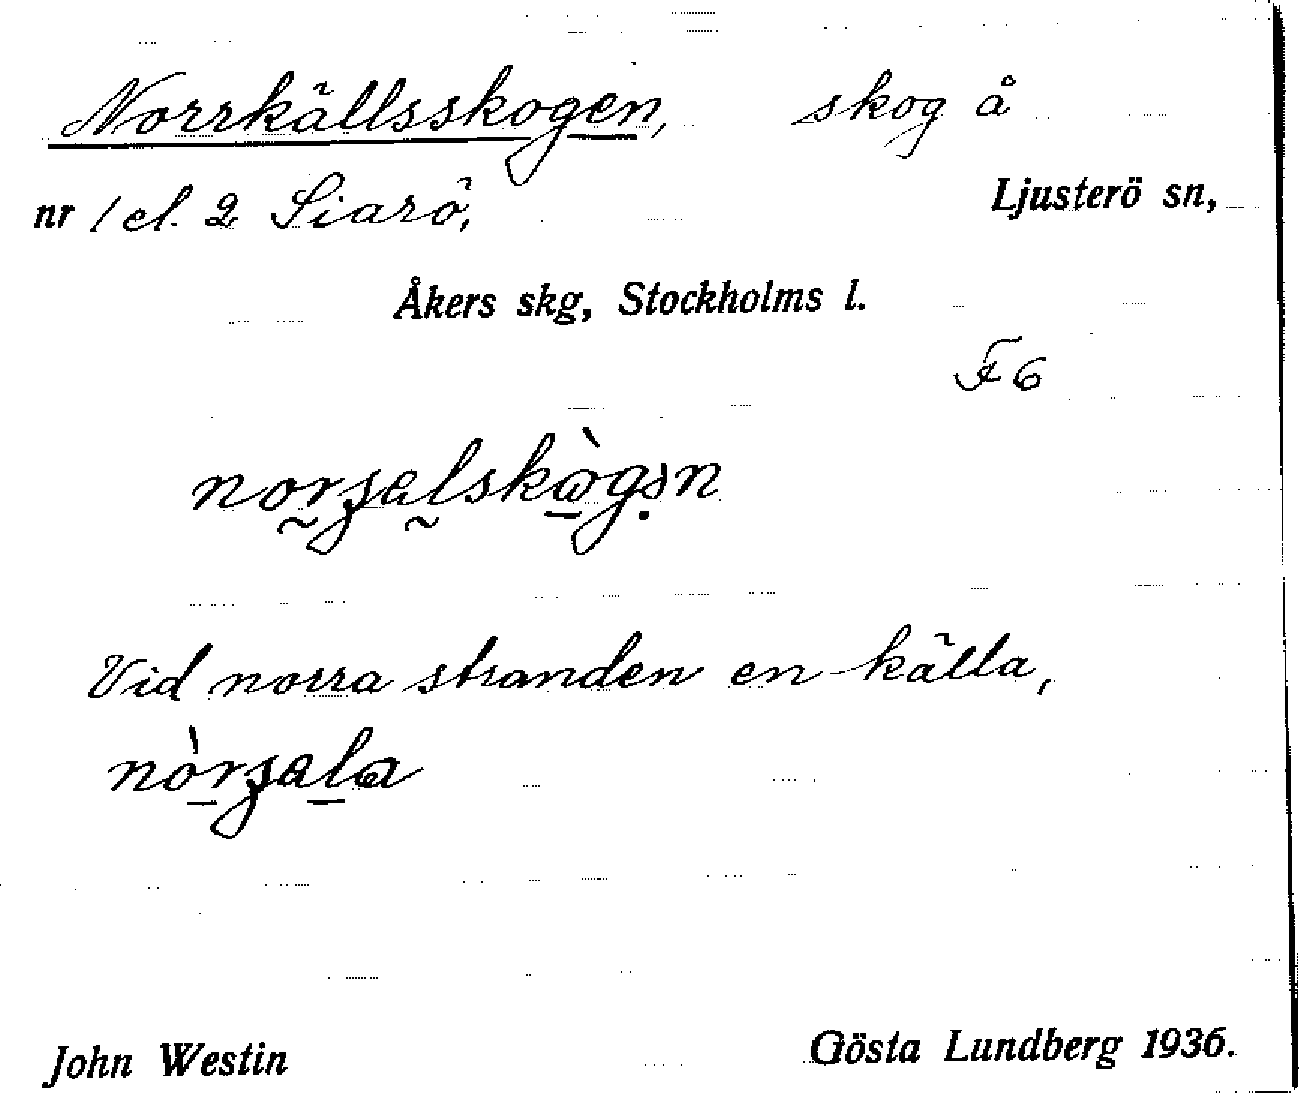 Norrkällsskogen, skog å
nr 1 el. 2 Siarö, Ljusterö sn,
Åkers skg, Stockholms l.
F6
Vid norra stranden en källa,
John Westin Gösta Lundberg 1936.